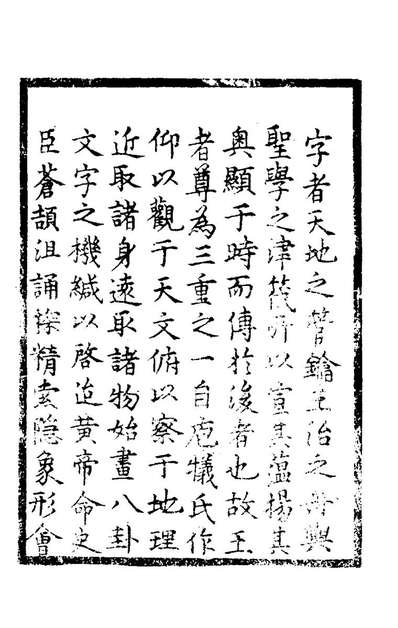 字者天地之管鑰王治之舟輿
聖學之津筏所以宣其蘊揚其
奥顯于時而傳於後者也故王
者尊為三重之一自庖犧氏作
仰以觀于天文俯以察于地理
近取諸身遠取諸物始畫八卦
文字之機緘以啓迨黄帝命史
臣蒼頡沮誦探精索隐象形會